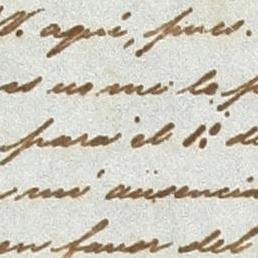 V. aquí, pues.
as no me lo p
para el 1º de
mi ausencia
en favor del